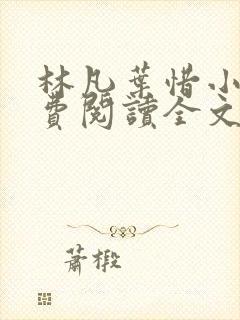 林凡葉惜小
費閱讀全文
蕭椴